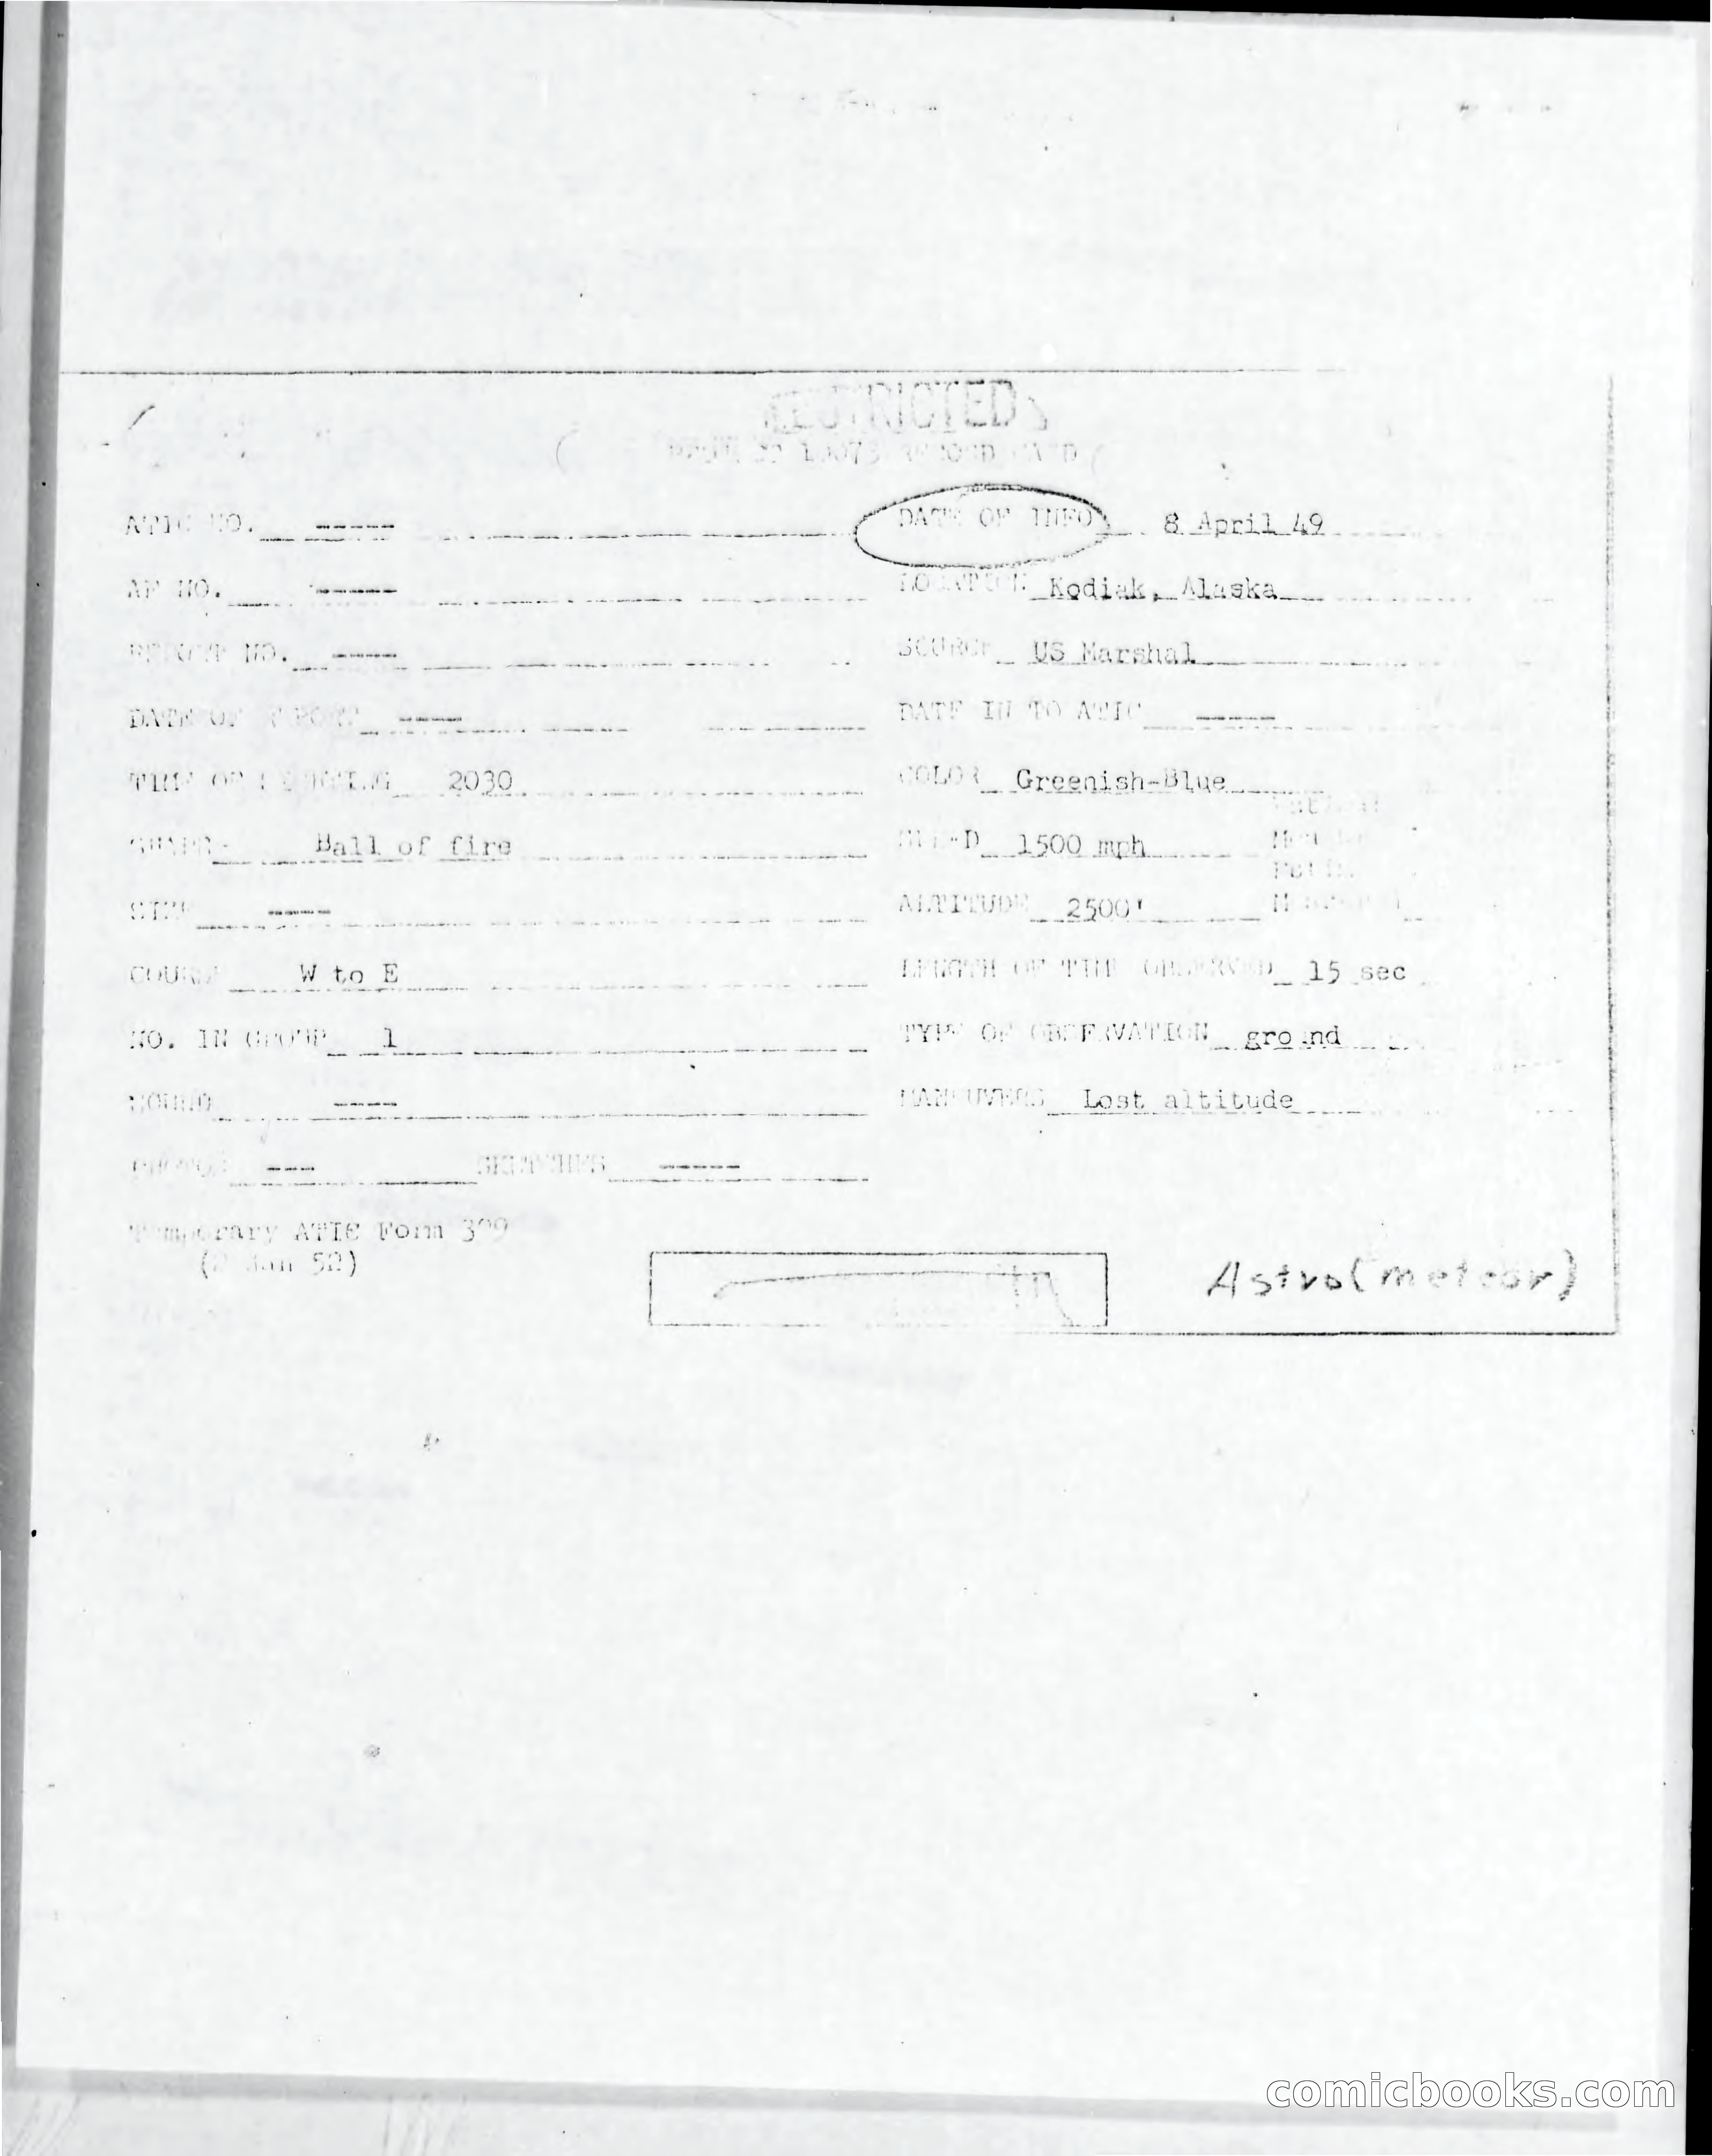 RESTRICTED
PROJECT 10073 RECORD CARD
ATIC NO. ----- DATE OF INFO 8 April 49
AF NO. ----- LOCATION Kodiak, Alaska
REPORT NO. ---- SOURCE US Marshal
DATE OF REPORT ---- DATE IN TO ATIC -----
TIME OF SIGHTING 2030 COLOR Greenish-Blue
SHAPE Ball of fire SPEED 1500 mph
SIZE ---- ALTITUDE 2500'
COURSE W to E LENGTH OF TIME OBSERVED 15 sec
NO. IN GROUP 1 TYPE OF OBSERVATION ground
SOUND ---- MANEUVERS Lost altitude
PHOTOS --- SKETCHES -----
Temporary ATIC Form 329
(2 Jan 52)
Astro(meteor)
comicbooks.com